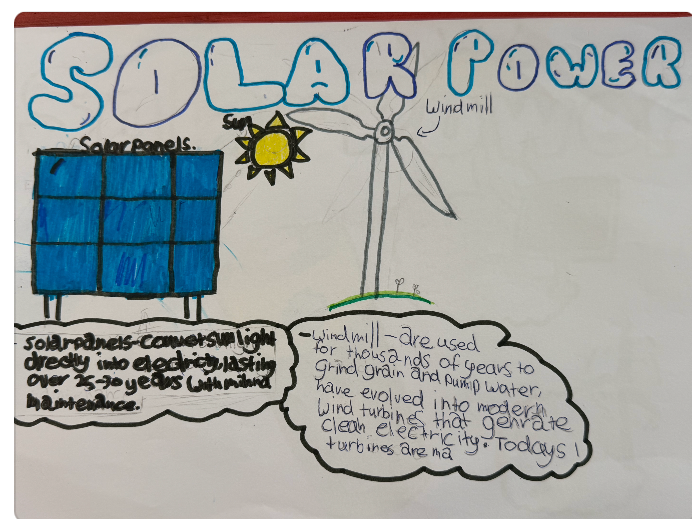 SOLAR POWER
Windmill
Sun
Solar panels.
Solar panels-convert sun light
directly into electricity, lasting
over 25-30 years (with
maintenance.
-windmill-are used
for thousands of years to
grind grain and pump water,
have evolved into modern
wind turbines that genrate
clean electricity. Todays
turbines are ma